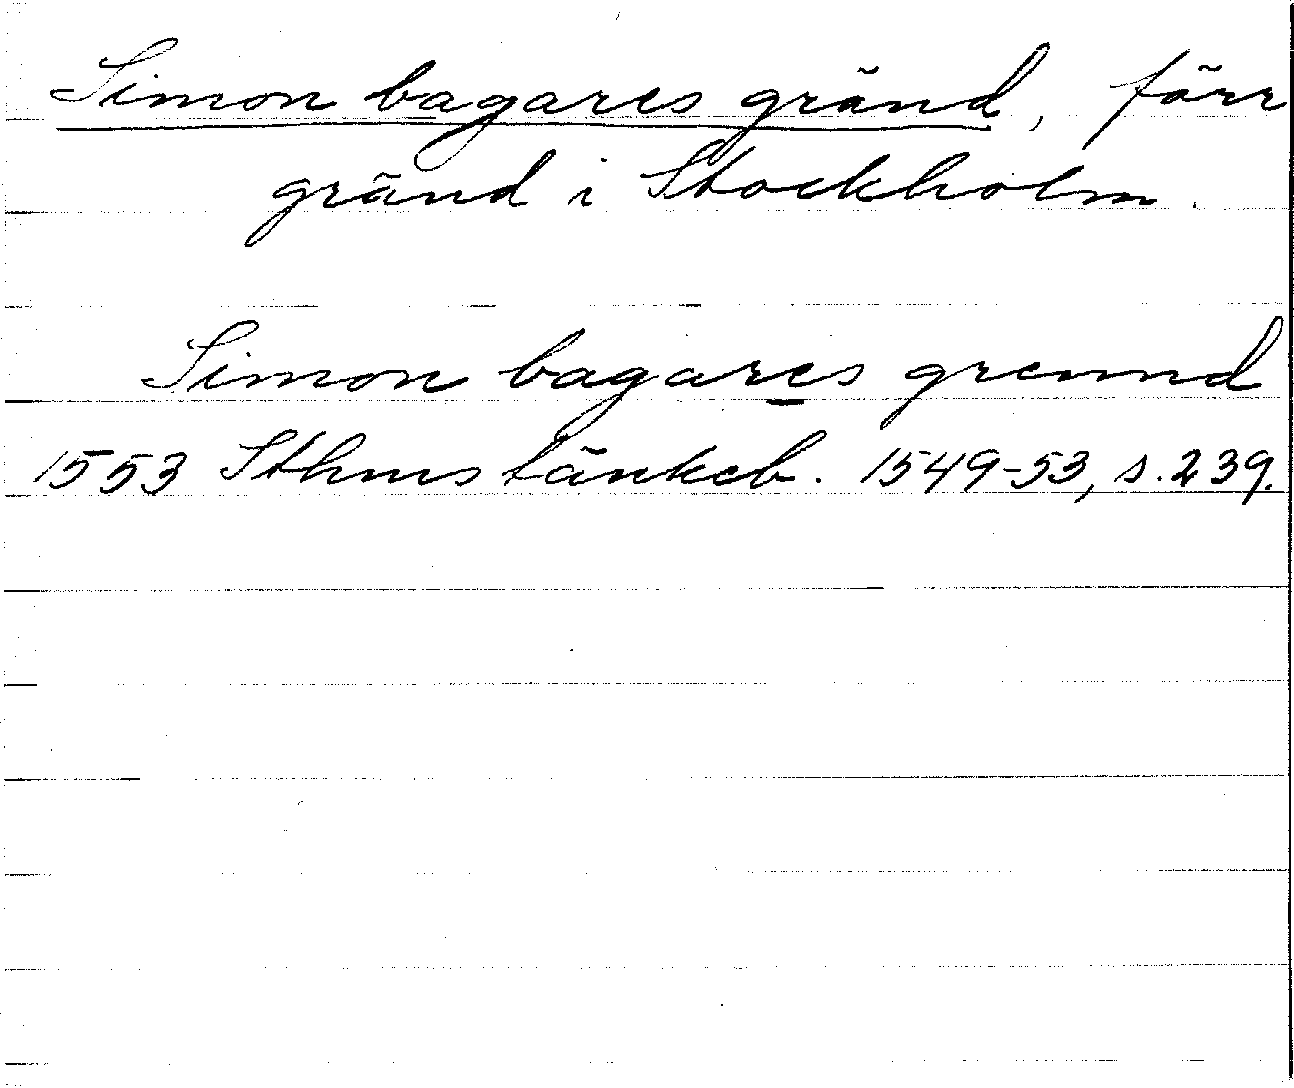 Simon bagares gränd, förr
gränd i Stockholm.
Simon bagares grennd
1553 Sthms tänkeb. 1549-53, s. 239.